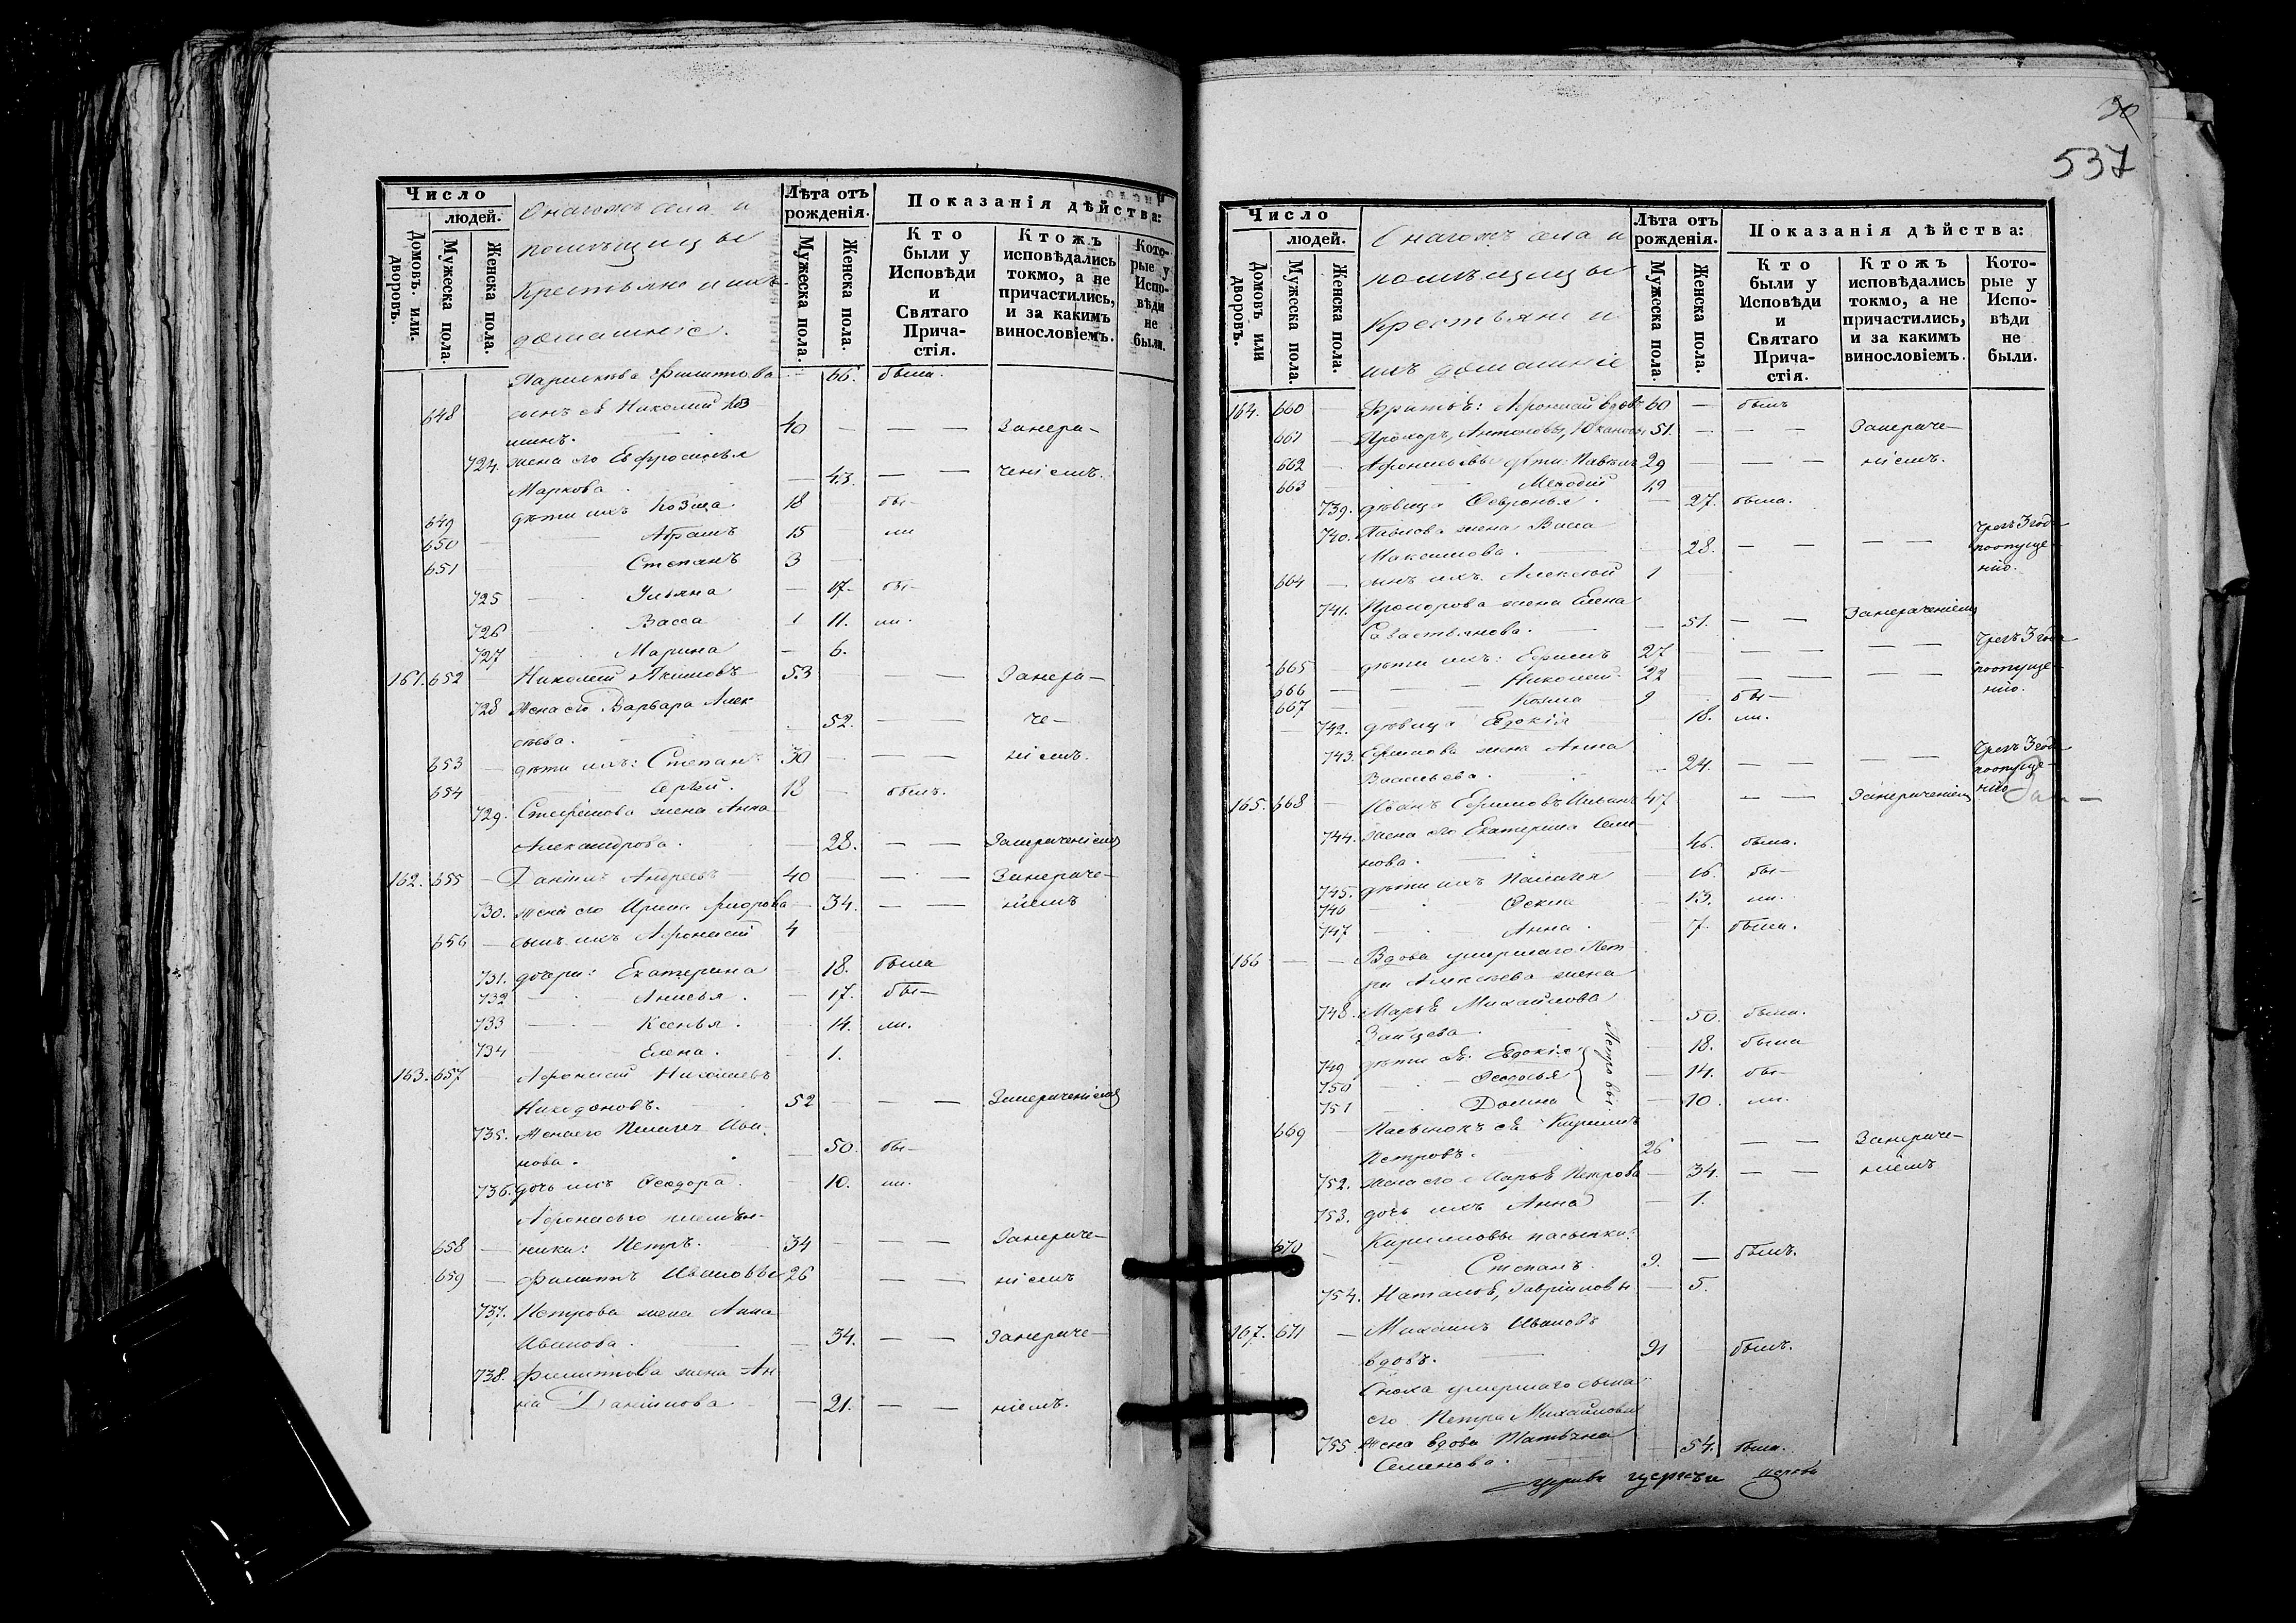 Число
людей.
Домовъ или дворовъ.
Мужеска пола.
Женска пола.
села и
помѣщицы
Крестьяне и ихъ
домашніе.
Лѣта отъ рожденія.
Мужеска пола.
Женска пола.
Показанія дѣйства:
Кто были у Исповѣди и Святаго Причастія.
Ктожъ исповѣдались токмо, а не причастились, и за какимъ винословіемъ.
Которые у Исповѣди не были.
Филипова 66. была.
648 сынъ ея Николай
40 — — — Занере—
724. жена его Ефросинья
Маркова — 43. — — ченіемъ.
649 дѣти ихъ Козма 18 бы—
650 Абрамъ 15 ли
651 Степанъ 3
725 Ульяна — 17. бы—
726 Васса 11. ли.
727 Марина — 6.
161. 652 Николай Акимовъ 53 — Занере—
728 Жена его Варвара Алек
сѣева. 52. — — че—
653 — дѣти ихъ: Степанъ 30 — — ніемъ.
654 Сергѣй. 13 — былъ.
729. Стефанова жена Анна
Александрова. — 28. — — Занереченіемъ
162. 655 — Данiилъ Андреевъ 40 — — — Занерече—
730. жена его Ирина — 34. — — ніемъ
656 — сынъ ихъ Афонасій 4
731. дочери: Екатерина 18. была
732 Анисья. — 17. бы—
733 Ксенья. 14. ли.
734 Елена. 1.
163. 657 Афонасій Николаевъ
52 — — — Занереченіемъ
735. Жена его Пелагея Ива
нова. — 50. бы—
736. дочь ихъ Ѳеодора. — 10. ли.
Афонасьего племян-
658 — ники: Петръ. 34 — — — Занерече—
659 — Филипъ Ивановы 26 — — ніемъ
737. Петрова жена Анна
Иванова. — 34. — — Занерече—
738. Филиппова жена Ан
на Даніилова — 21. — — ніемъ.
30
537
Число
людей.
Домовъ или дворовъ.
Мужеска пола.
Женска пола.
села и
помѣщицы
Крестьяне и
ихъ домашніе
Лѣта отъ рожденія.
Мужеска пола.
Женска пола.
Показанія дѣйства:
Кто были у Исповѣди и Святаго Причастія.
Ктожъ исповѣдались токмо, а не причастились, и за какимъ винословіемъ.
Которые у Исповѣди не были.
164. 660 — Братья: Афонасій вдовъ 60 — былъ
661 — Прохоръ, Антоновы, 51. — — — Занерече—
662 — Афонасьевы дѣти: Павелъ 29 — — — ніемъ.
663 Меѳодій 19
739. дѣвица Ѳевронья. — 27. была.
740. Павлова жена Васса
Максимова. 28. — — — — Чрезъ 3 года
по опуще-
нію.
664 — сынъ ихъ Алексѣй 1 —
741. Прохорова жена Елена
Савастьянова. — 51. — — Занереченіемъ
665 — дѣти ихъ: Ефимъ 27 — — — — — Чрезъ 3 года
666 — Николай 22 — — — — — по опуще-
667 — Козма 9 бы— нію.
742. дѣвица Евдокія 18. ли.
743. Ефимова жена Анна
Васильева. — 24. — — — — Чрезъ 3 года
по опуще-
нію
165. 668 — Иванъ Ефимовъ 47 — — Занереченіемъ
744. жена его Екатерина Семе
нова. — 46. была.
745. дѣти ихъ Пелагея — 16. бы—
746 Ѳекла — 13. ли.
747 Анна. — 7. была.
166 — — Вдова умершаго Пет
ра Алексѣева жена
748. Марья Михайлова
Зайцева — 50. была.
749 дѣти ея: Евдокія — 18. была
750 Ѳеодосья — 14. бы—
751 Домна — 10. ли.
Петровы.
669 — Пасынокъ ея Кирилъ
Петровъ. 26 — — Занерече—
752. Жена его Марья Петрова — 34. — — ніемъ
753. дочь ихъ Анна — 1.
670 — Кириловы пасынки:
Степанъ. 9. — былъ.
754. Наталья, Гавриловы — 5.
167. 671 — Михаилъ Ивановъ
вдовъ. 91 — былъ.
Сноха умершаго сына
его Петра Михайлова
755. Жена вдова Татьяна
Семенова. — 54. была.